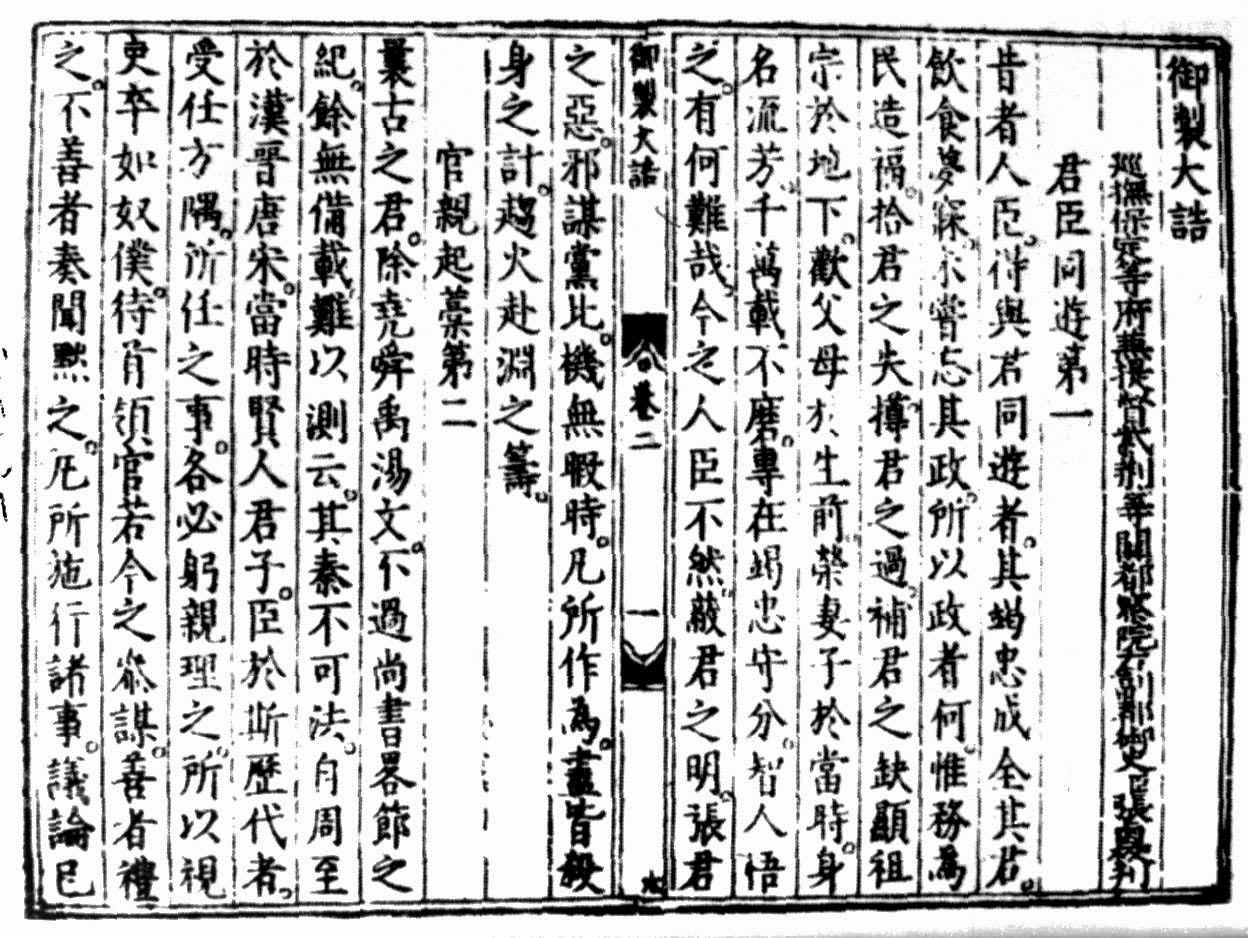 御製大誥
巡撫保定等府兼提督紫荆等關都察院右副都御史臣張
君臣同遊第一
昔者人臣得與君同遊者其竭忠成全其君
飲食夢寐未嘗忘其政所以政者何惟務為
民造福拾君之失撙君之過補君之缺顯祖
宗於地下歡父母於生前榮妻子於當時身
名流芳千萬載不磨專在竭忠守分智人悟
之有何難哉今之人臣不然蔽君之明張君
御製大誥 卷二 一
之惡邪謀黨比機無暇時凡所作為盡皆殺
身之計趨火赴淵之籌
官親起藁第二
曩古之君除堯舜禹湯文不過尚書畧節之
紀餘無備載難以測云其秦不可法自周至
於漢晉唐宋當時賢人君子臣於斯歷代者
受任方隅所任之事各必躬親理之所以視
吏卒如奴僕待首領官若今之叅謀善者禮
之不善者奏聞黙之凡所施行諸事議論已